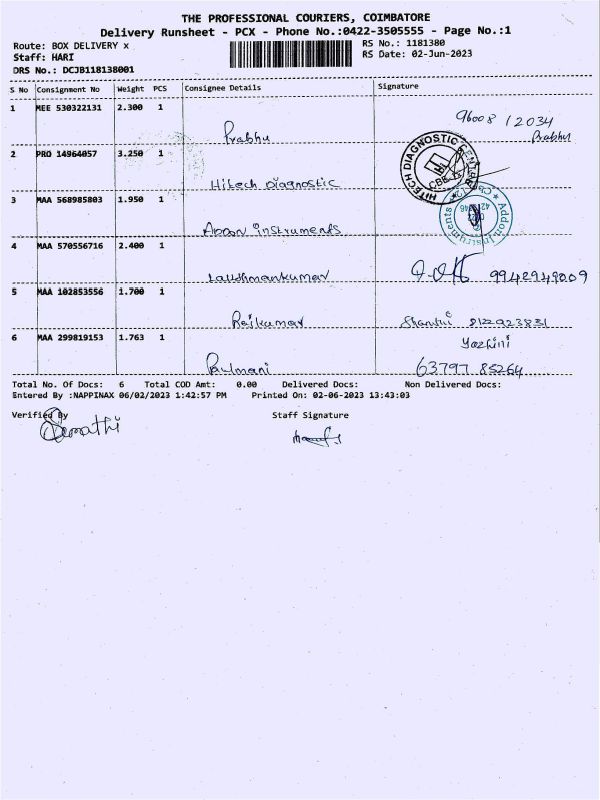 THE PROFESSIONAL COURIERS, COIMBATORE
Delivery Runsheet - PCX - Phone No.:0422-3505555 - Page No.:1
Route: BOX DELIVERY x RS No.: 1181380
Staff: HARI RS Date: 02-Jun-2023
DRS No.: DCJB118138001
S No Consignment No Weight PCS Consignee Details Signature
1 MEE 530322131 2.300 1
96008 12034
Prabhu Prabhu
2 PRO 14964057 3.250 1
HITECH DIAGNOSTIC CENTRE
CBE
Hitech Diagnostic
3 MAA 568985803 1.950 1
Addon Instruments
Addon instruments
4 MAA 570556716 2.400 1
Lakshmankumar 9942949009
5 MAA 102853556 1.700 1
Rajkumar Shanthi 8122923831
6 MAA 299819153 1.763 1
Yazhini
63797 85264
Total No. Of Docs: 6 Total COD Amt: 0.00 Delivered Docs: Non Delivered Docs:
Entered By :NAPPINAX 06/02/2023 1:42:57 PM Printed On: 02-06-2023 13:43:03
Verified By Staff Signature